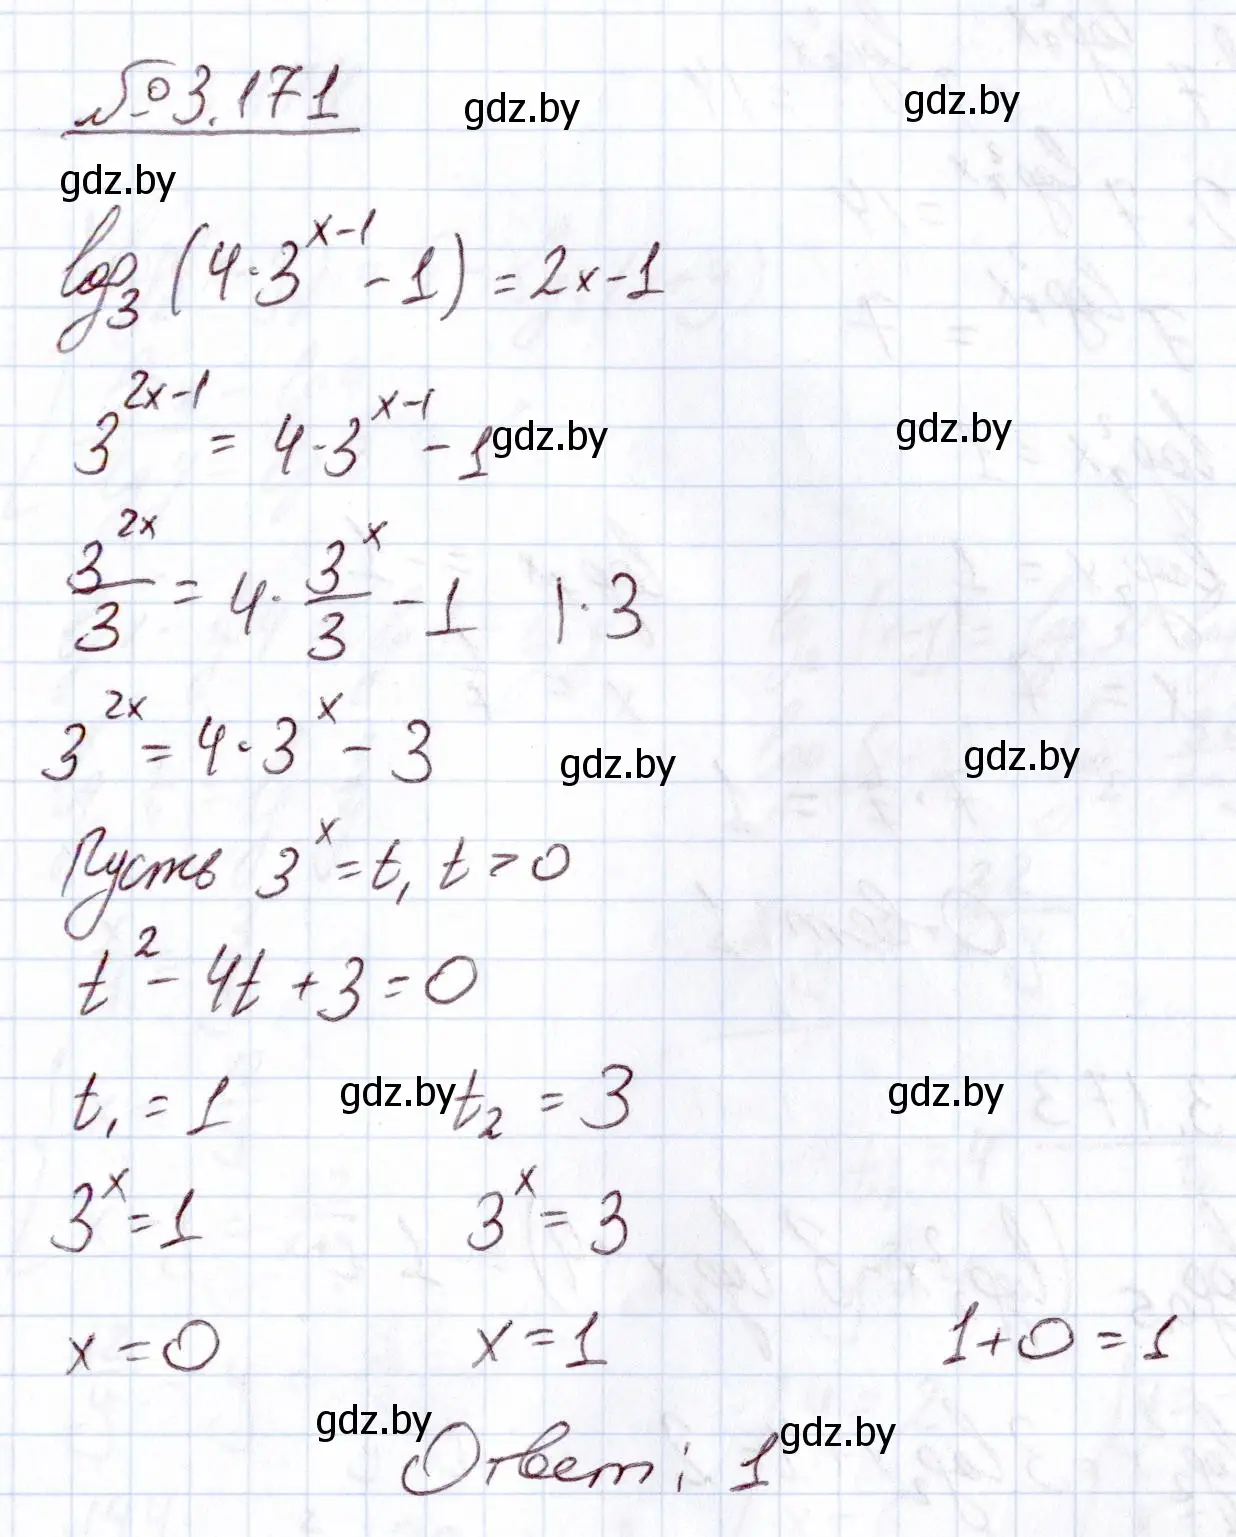 №3.171 gdz.by gdz.by
gdz.by
log₃(4·3^(x-1) - 1) = 2x-1
3^(2x-1) = 4·3^(x-1) - 1 gdz.by gdz.by
3^(2x)/3 = 4·3^x/3 - 1 |·3
3^(2x) = 4·3^x - 3 gdz.by gdz.by
Пусть 3^x = t, t > 0
t² - 4t + 3 = 0
t₁ = 1 gdz.by t₂ = 3 gdz.by
3^x = 1 3^x = 3
x = 0 x = 1 1+0 = 1
gdz.by Ответ: 1 gdz.by